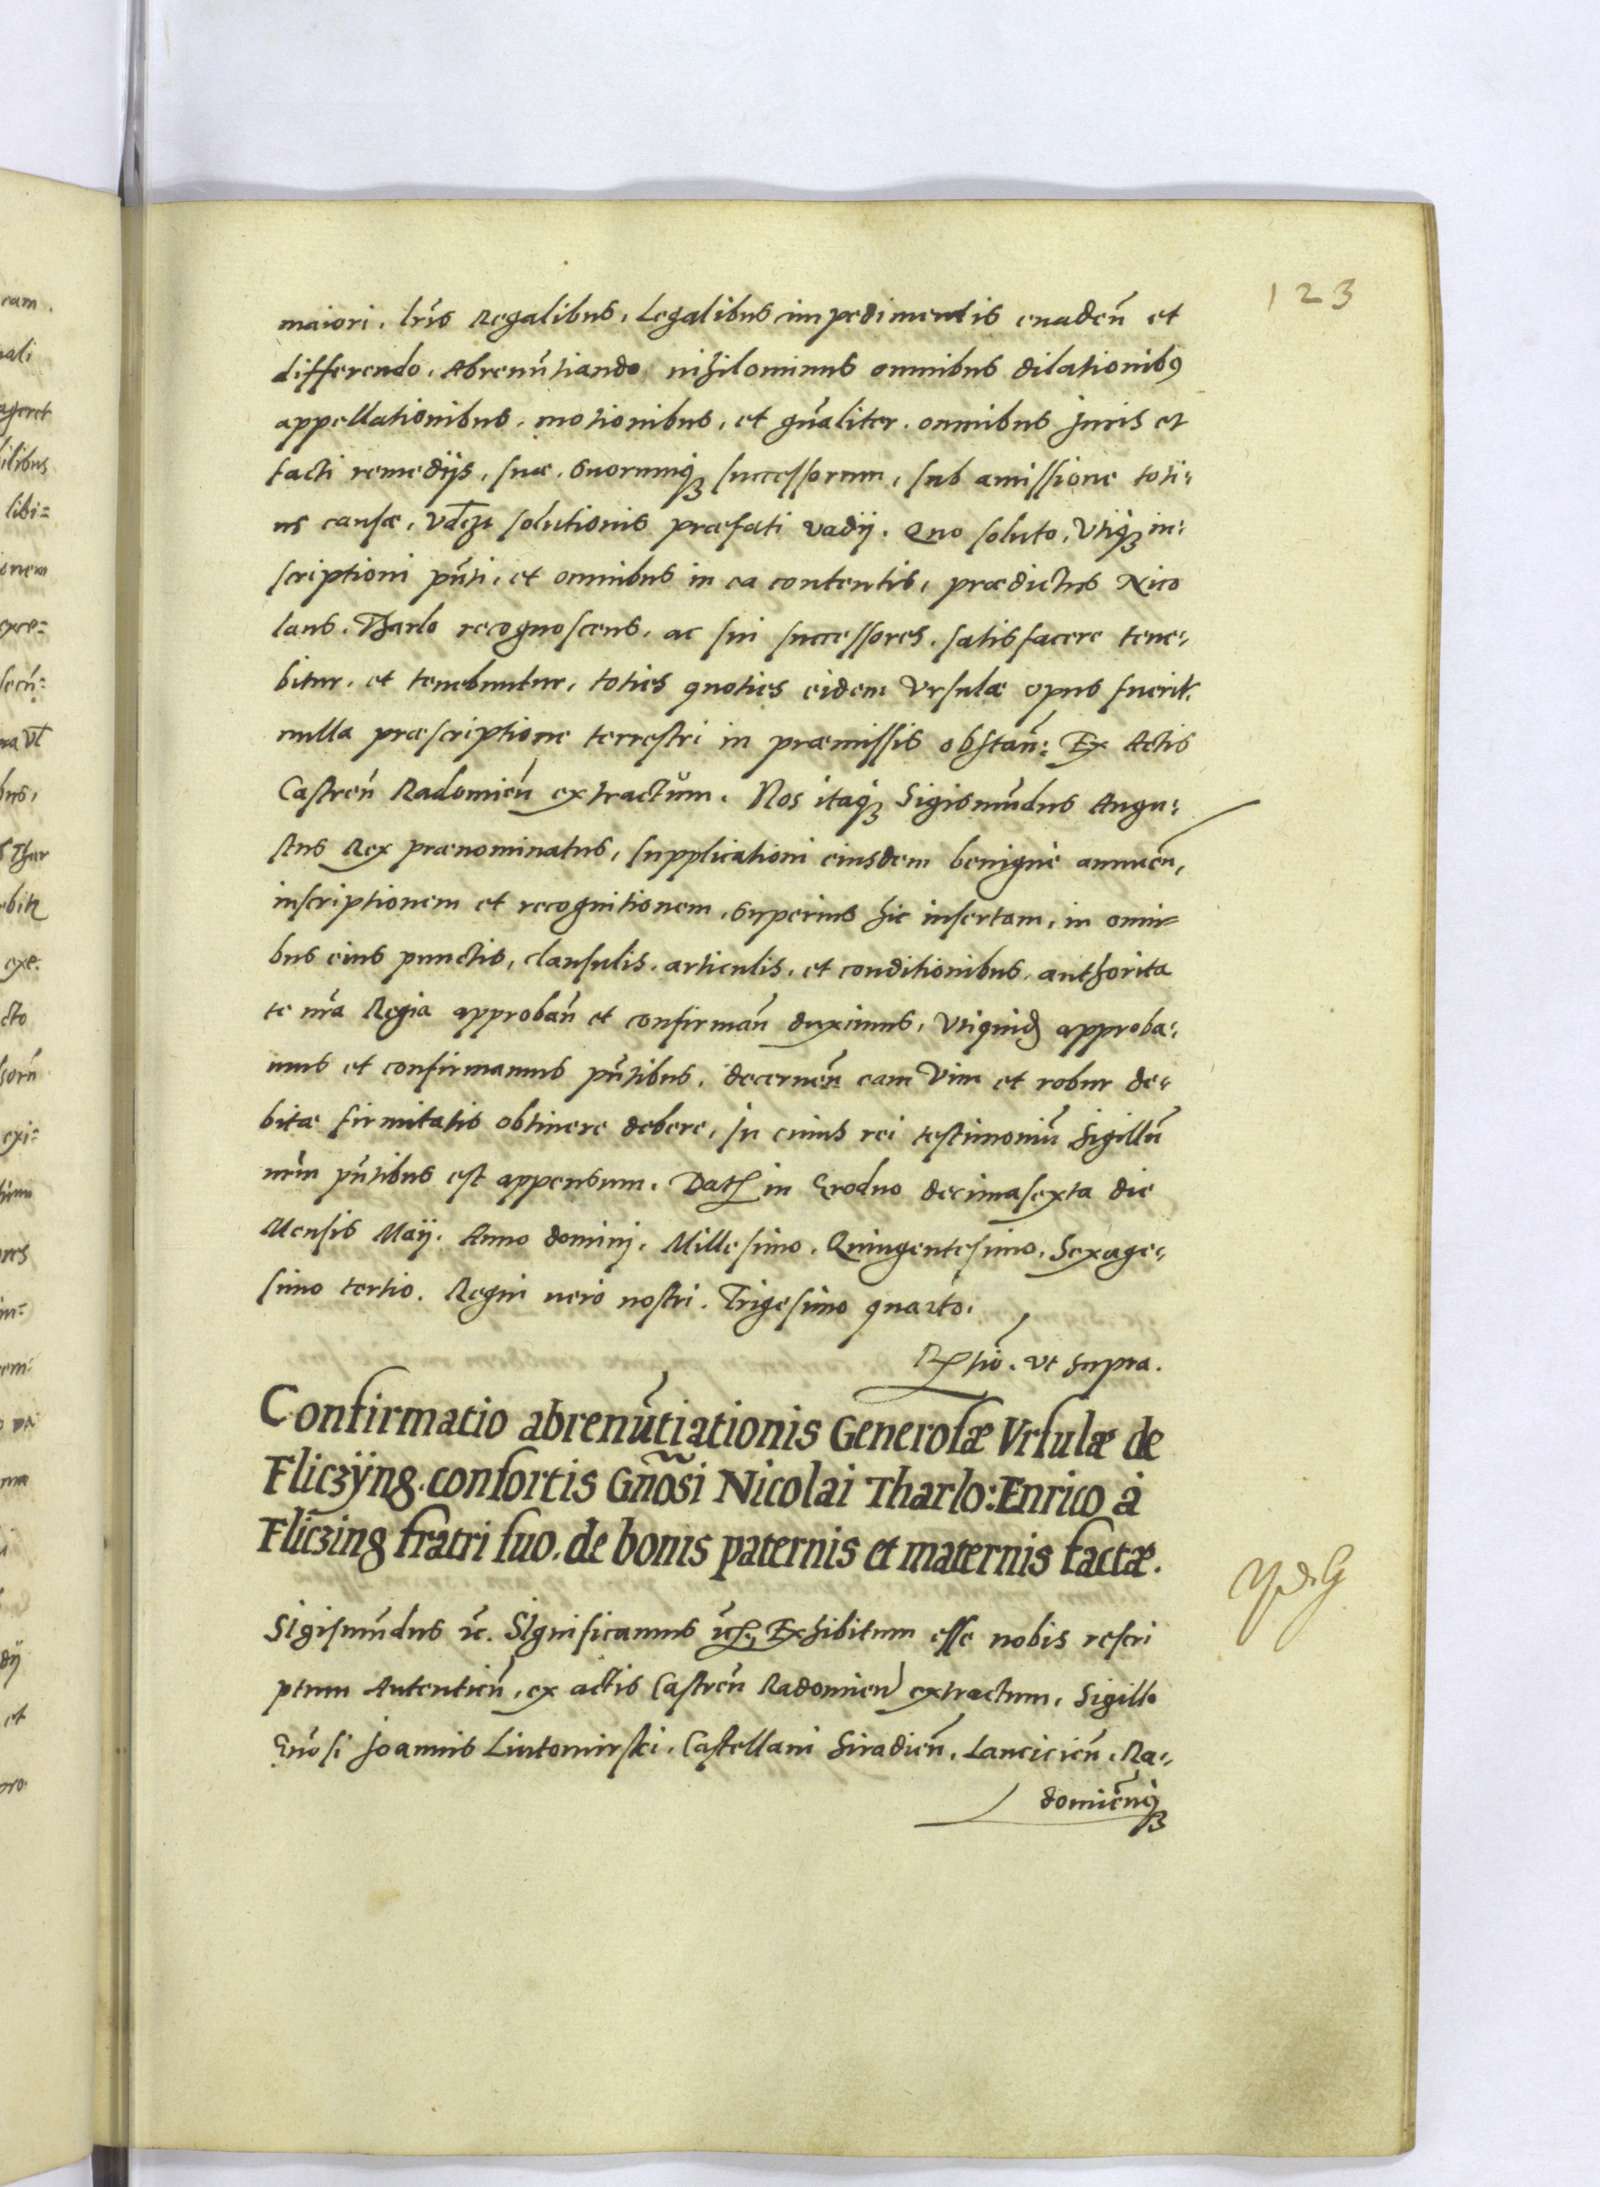 123
maiori. lr̃is Regalibus, Legalibus impedimentis euadeñ et
differendo. Abrenũtiando nihilominus omnibus dilationibꝰ
appellationibus. motionibus, et gñaliter. omnibus juris et
facti remedijs, suæ. suorumqꝫ successorum, sub amissione toti-
us causæ, vdczt solutionis præfati vadij. Quo soluto, Vtiqꝫ in-
scriptioni pñti, et omnibus in ea contentis, prædictus Nico
laus. Tharlo recognoscens. ac sui successores. satisfacere tene-
bitur. et tenebuntur, toties quoties eidem Vrsulæ opus fuerit.
nulla præscriptione terrestri in præmissis obstañ: Ex Actis
Castreñ Radomieñ extractũm. Nos itaqꝫ Sigismũdus Augu-
stus Rex prænominatus, supplicationi eiusdem benignè annueñ,
inscriptionem et recognitionem, superius hic insertam, in omni-
bus eius punctis, clausulis. articulis. et conditionibus. authorita
te nr̃a Regia approbañ et confirmañ duximus, Vtiquidꝫ approba-
mus et confirmamus pñtibus. decerneñ eam Vim et robur de-
bitæ firmitatis obtinere debere, In cuius rei testimoniũ Sigillũ
nr̃m pñtibus est appensum. Datꝭ in Grodno decimasexta die
Mensis Maij. Anno dominj. Millesimo. Quingentesimo. Sexage-
simo tertio. Regni uero nostri. Trigesimo quarto.
Rꝭtiõ. vt supra.
Confirmatio abrenũtiationis Generosæ Vrsulæ de
Fliczÿng. consortis Gñosi Nicolai Tharlo: Enrico à
Fliczing fratri suo. de bonis paternis et maternis factæ.
Sigismũdus ꝛc. Significamus ꝛc̃, Exhibitum esse nobis rescri
ptum Autenticũ, ex actis Castreñ Radomieñ extractum, Sigillo
Gñosi Joannis Lutomirski. Castellani Siradieñ. Lancicieñ. Ra-
domieñqꝫ